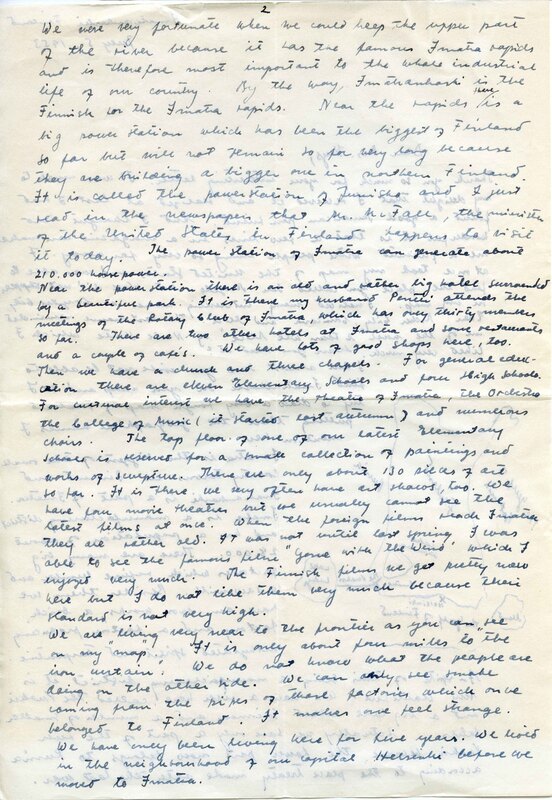 2
We were very fortunate when we could keep the upper part
of the river because it has the famous Imatra rapids
and is therefore most important to the whole industrial
life of our country. By the way, Imatrankoski is the
Finnish for the Imatra rapids. Near the rapids there is a
big power station which has been the biggest of Finland
so far but will not remain so for very long because
they are building a bigger one in northern Finland.
It is called the powerstation of and I just
read in the newspapers that Mr. McFall, the minister
of the United States in Finland happens to visit
it today. The power station of Imatra can generate about
210.000 horsepower.
Near the powerstation there is an old and rather big hotel surrounded
by a beautiful park. It is there my husband Pentti attends the
meetings of the Rotary Club of Imatra, which has only thirty members
so far. There are two other hotels at Imatra and some restaurants
and a couple of cafés. We have lots of good shops here, too.
Then we have a church and three chapels. For general edu-
cation there are eleven Elementary Schools and four High Schools.
For cultural interest we have the Theatre of Imatra, the Orchestra
the College of Music (it started last autumn) and numerous
choirs. The top floor of one of our latest Elementary
Schools is reserved for a small collection of paintings and
works of sculpture. There are only about 130 pieces of art
so far. It is there, we very often have art shows, too. We
have four movie theatres but we usually cannot see the
latest films at once. When the foreign films reach Imatra
they are rather old. It was not until last spring, I was
able to see the famous film "Gone with the Wind" which I
enjoyed very much. The Finnish films we get pretty new
here but I do not like them very much because their
standard is not very high.
We are living very near to the frontier as you can see
on my "map". It is only about four miles to the
"iron curtain". We do not know what the people are
doing on the other side. We can only see smoke
coming from the pipes of those factories which once
belonged to Finland. It makes one feel strange.
We have only been living here for five years. We lived
in the neighbourhood of our capital, Helsinki before we
moved to Imatra.